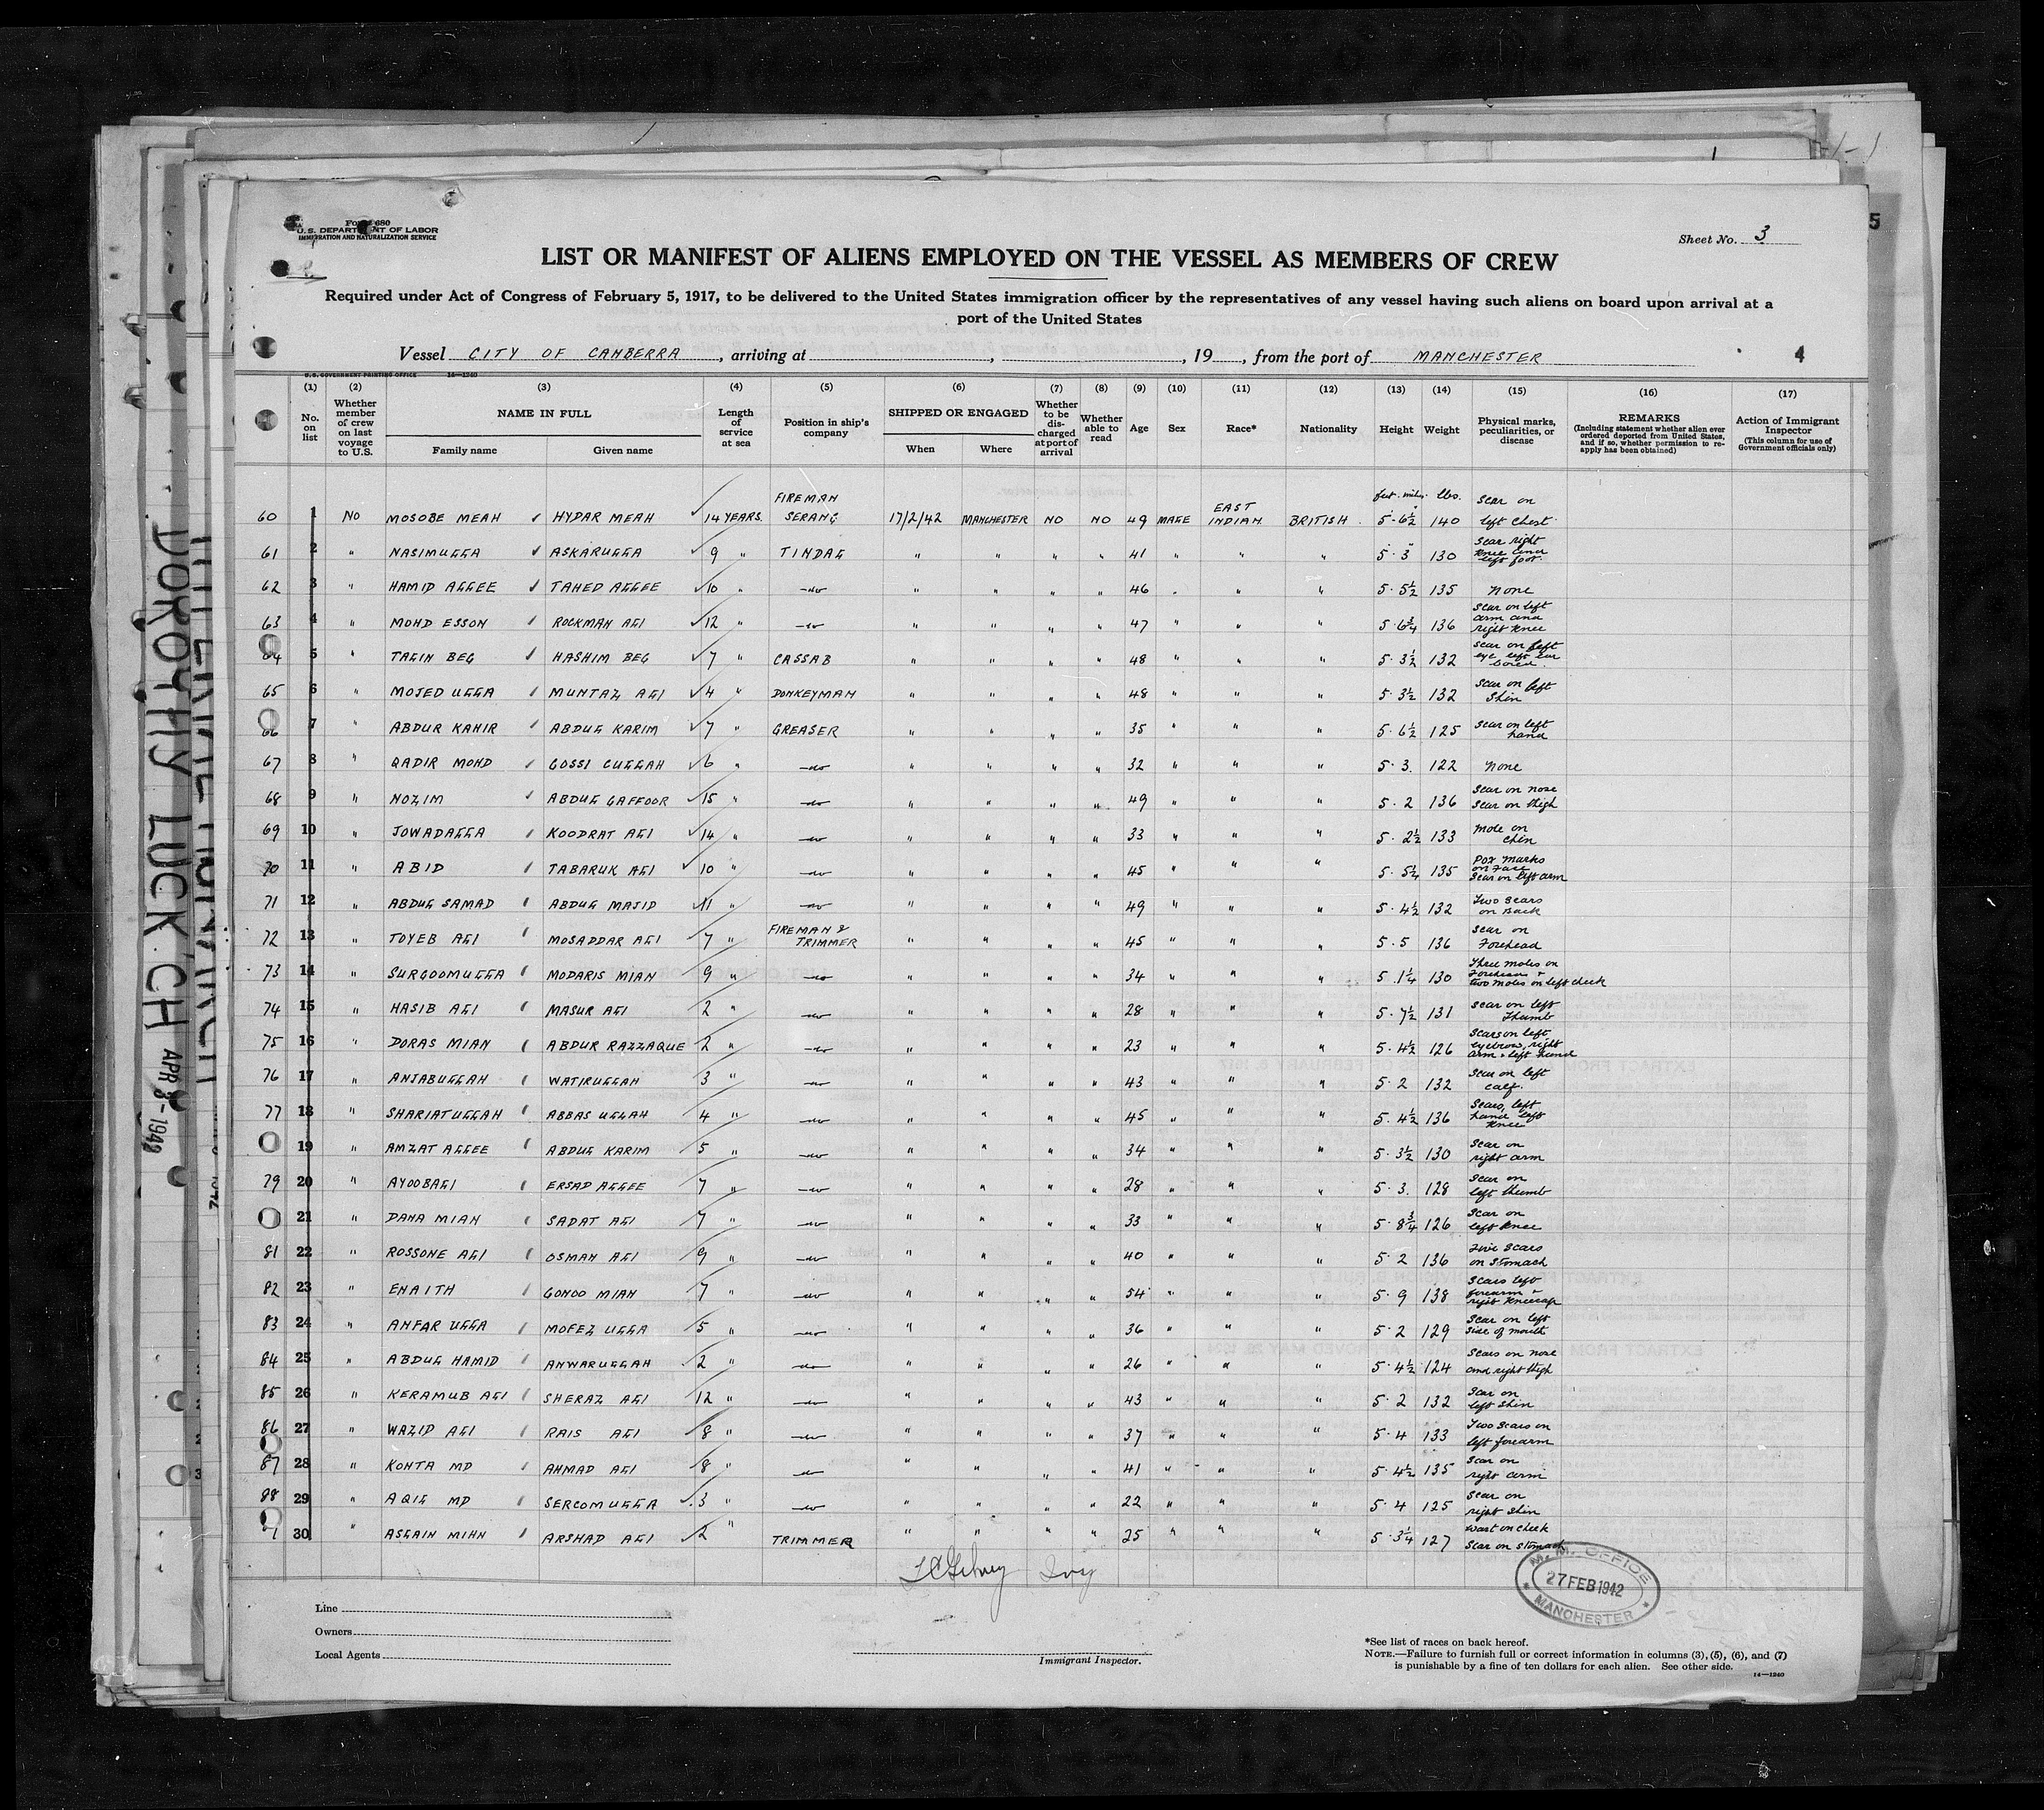 Form 680
U.S. DEPARTMENT OF LABOR
IMMIGRATION AND NATURALIZATION SERVICE
Sheet No. 3
LIST OR MANIFEST OF ALIENS EMPLOYED ON THE VESSEL AS MEMBERS OF CREW
Required under Act of Congress of February 5, 1917, to be delivered to the United States immigration officer by the representatives of any vessel having such aliens on board upon arrival at a
port of the United States
Vessel CITY OF CANBERRA, arriving at , , 19 , from the port of MANCHESTER 4
U.S. GOVERNMENT PRINTING OFFICE 14—1240
(1) No. on list
(2) Whether member of crew on last voyage to U.S.
(3) NAME IN FULL Family name Given name
(4) Length of service at sea
(5) Position in ship's company
(6) SHIPPED OR ENGAGED When Where
(7) Whether to be discharged at port of arrival
(8) Whether able to read
(9) Age
(10) Sex
(11) Race*
(12) Nationality
(13) Height
(14) Weight
(15) Physical marks, peculiarities, or disease
(16) REMARKS (Including statement whether alien ever ordered deported from United States, and if so, whether permission to reapply has been obtained)
(17) Action of Immigrant Inspector (This column for use of Government officials only)
60 1 NO MOSOBE MEAH HYDAR MEAH 14 YEARS. FIREMAN SERANG 17/2/42 MANCHESTER NO NO 49 MALE EAST INDIAN BRITISH 5·6½ 140 Scar on left chest
61 2 " NASIMULLA ASKARULLA 9 " TINDAL " " " " 41 " " " 5·3 130 Scar right knee and left foot
62 3 " HAMID ALLEE TAHED ALLEE 10 " do " " " " 46 " " " 5·5½ 135 None
63 4 " MOHD ESSON ROCKMAN ALI 12 " do " " " " 47 " " " 5·6¾ 136 Scar on left arm and right knee
64 5 " TALIN BEG HASHIM BEG 7 " CASSAB " " " " 48 " " " 5·3½ 132 Scar on left eye left ear bored
65 6 " MOJED ULLA MUNTAZ ALI 4 " DONKEYMAN " " " " 48 " " " 5·3½ 132 Scar on left shin
66 7 " ABDUR KAHIR ABDUL KARIM 7 " GREASER " " " " 35 " " " 5·6½ 125 Scar on left hand
67 8 " QADIR MOHD GOSSI CULLAH 6 " do " " " " 32 " " " 5·3 122 None
68 9 " NOZIM ABDUL GAFFOOR 15 " do " " " " 49 " " " 5·2 136 Scar on nose Scar on thigh
69 10 " JOWADALLA KOODRAT ALI 14 " do " " " " 33 " " " 5·2½ 133 Mole on chin
70 11 " ABID TABARUK ALI 10 " do " " " " 45 " " " 5·5¼ 135 Pox marks on face Scar on left arm
71 12 " ABDUL SAMAD ABDUL MAJID 11 " do " " " " 49 " " " 5·4½ 132 Two scars on back
72 13 " TOYEB ALI MOSADDAR ALI 7 " FIREMAN & TRIMMER " " " " 45 " " " 5·5 136 Scar on forehead
73 14 " SURGOOMULLA MODARIS MIAN 9 " do " " " " 34 " " " 5·1¼ 130 Three moles on forehead & two moles on left cheek
74 15 " HASIB ALI MASUR ALI 2 " do " " " " 28 " " " 5·7½ 131 Scar on left thumb
75 16 " DORAS MIAN ABDUR RAZZAQUE 2 " do " " " " 23 " " " 5·4½ 126 Scars on left eyebrow, right arm & left hand
76 17 " ANJABULLAH WATIRULLAH 3 " do " " " " 43 " " " 5·2 132 Scar on left calf
77 18 " SHARIATULLAH ABBAS ULLAH 4 " do " " " " 45 " " " 5·4½ 136 Scars, left hand left knee
19 " AMZAT ALLEE ABDUL KARIM 5 " do " " " " 34 " " " 5·3½ 130 Scar on right arm
79 20 " AYOOBALI ERSAD ALLEE 7 " do " " " " 28 " " " 5·3 128 Scar on left thumb
21 " DANA MIAN SADAT ALI 7 " do " " " " 33 " " " 5·8¾ 126 Scar on left knee
81 22 " ROSSONE ALI OSMAN ALI 9 " do " " " " 40 " " " 5·2 136 Five scars on stomach
82 23 " ENAITH GONOO MIAN 7 " do " " " " 54 " " " 5·9 138 Scars left forearm & right kneecap
83 24 " ANFAR ULLA MOFEZ ULLA 5 " do " " " " 36 " " " 5·2 129 Scar on left side of mouth
84 25 " ABDUL HAMID ANWARULLAH 2 " do " " " " 26 " " " 5·4½ 124 Scars on nose and right thigh
85 26 " KERAMUB ALI SHERAZ ALI 12 " do " " " " 43 " " " 5·2 132 Scar on left shin
86 27 " WAZID ALI RAIS ALI 8 " do " " " " 37 " " " 5·4 133 Two scars on left forearm
87 28 " KONTA MD AHMAD ALI 8 " do " " " " 41 " " " 5·4½ 135 Scar on right arm
88 29 " AQIL MD SERCOMULLA 3 " do " " " " 22 " " " 5·4 125 Scar on right shin
30 " ASLAIN MIHN ARSHAD ALI 2 " TRIMMER " " " " 25 " " " 5·3¼ 127 Wart on cheek Scar on stomach
M. M. OFFICE
27 FEB 1942
MANCHESTER
Line
Owners
Local Agents
Immigrant Inspector.
*See list of races on back hereof.
NOTE.—Failure to furnish full or correct information in columns (3), (5), (6), and (7)
is punishable by a fine of ten dollars for each alien. See other side. 14—1240
DOROTHY LUCK'CH APR 8-1942